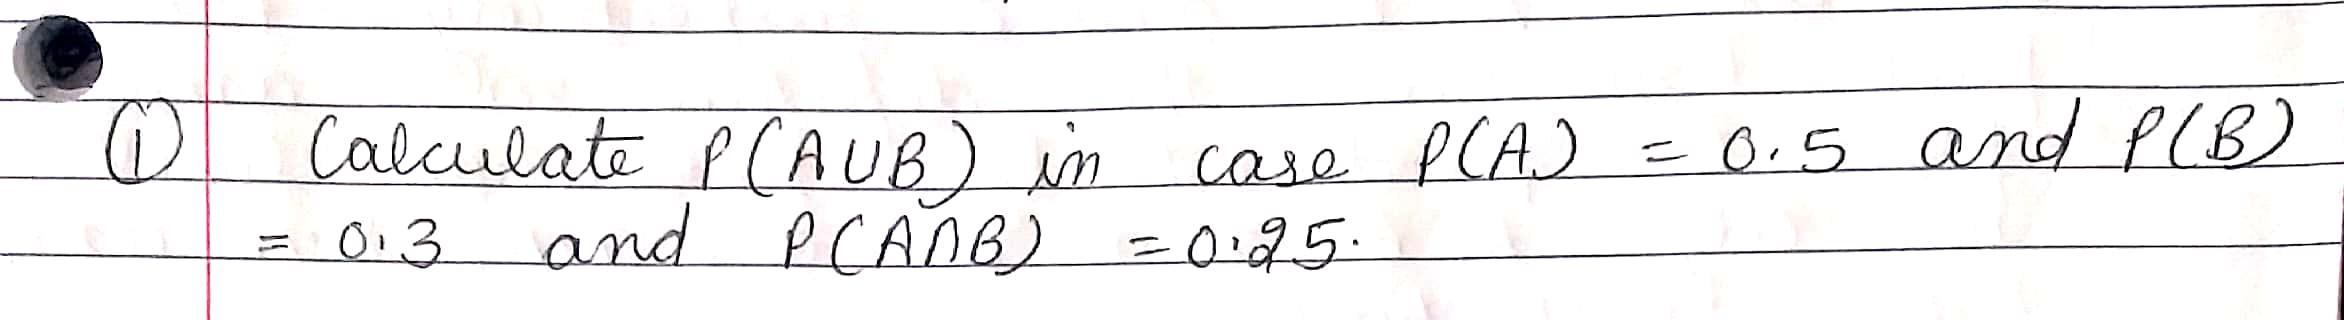 ① Calculate P(A∪B) in case P(A) = 0.5 and P(B)
= 0.3 and P(A∩B) = 0.25.